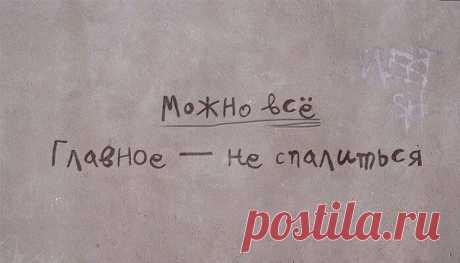 Можно всё
Главное — не спалиться
postila.ru